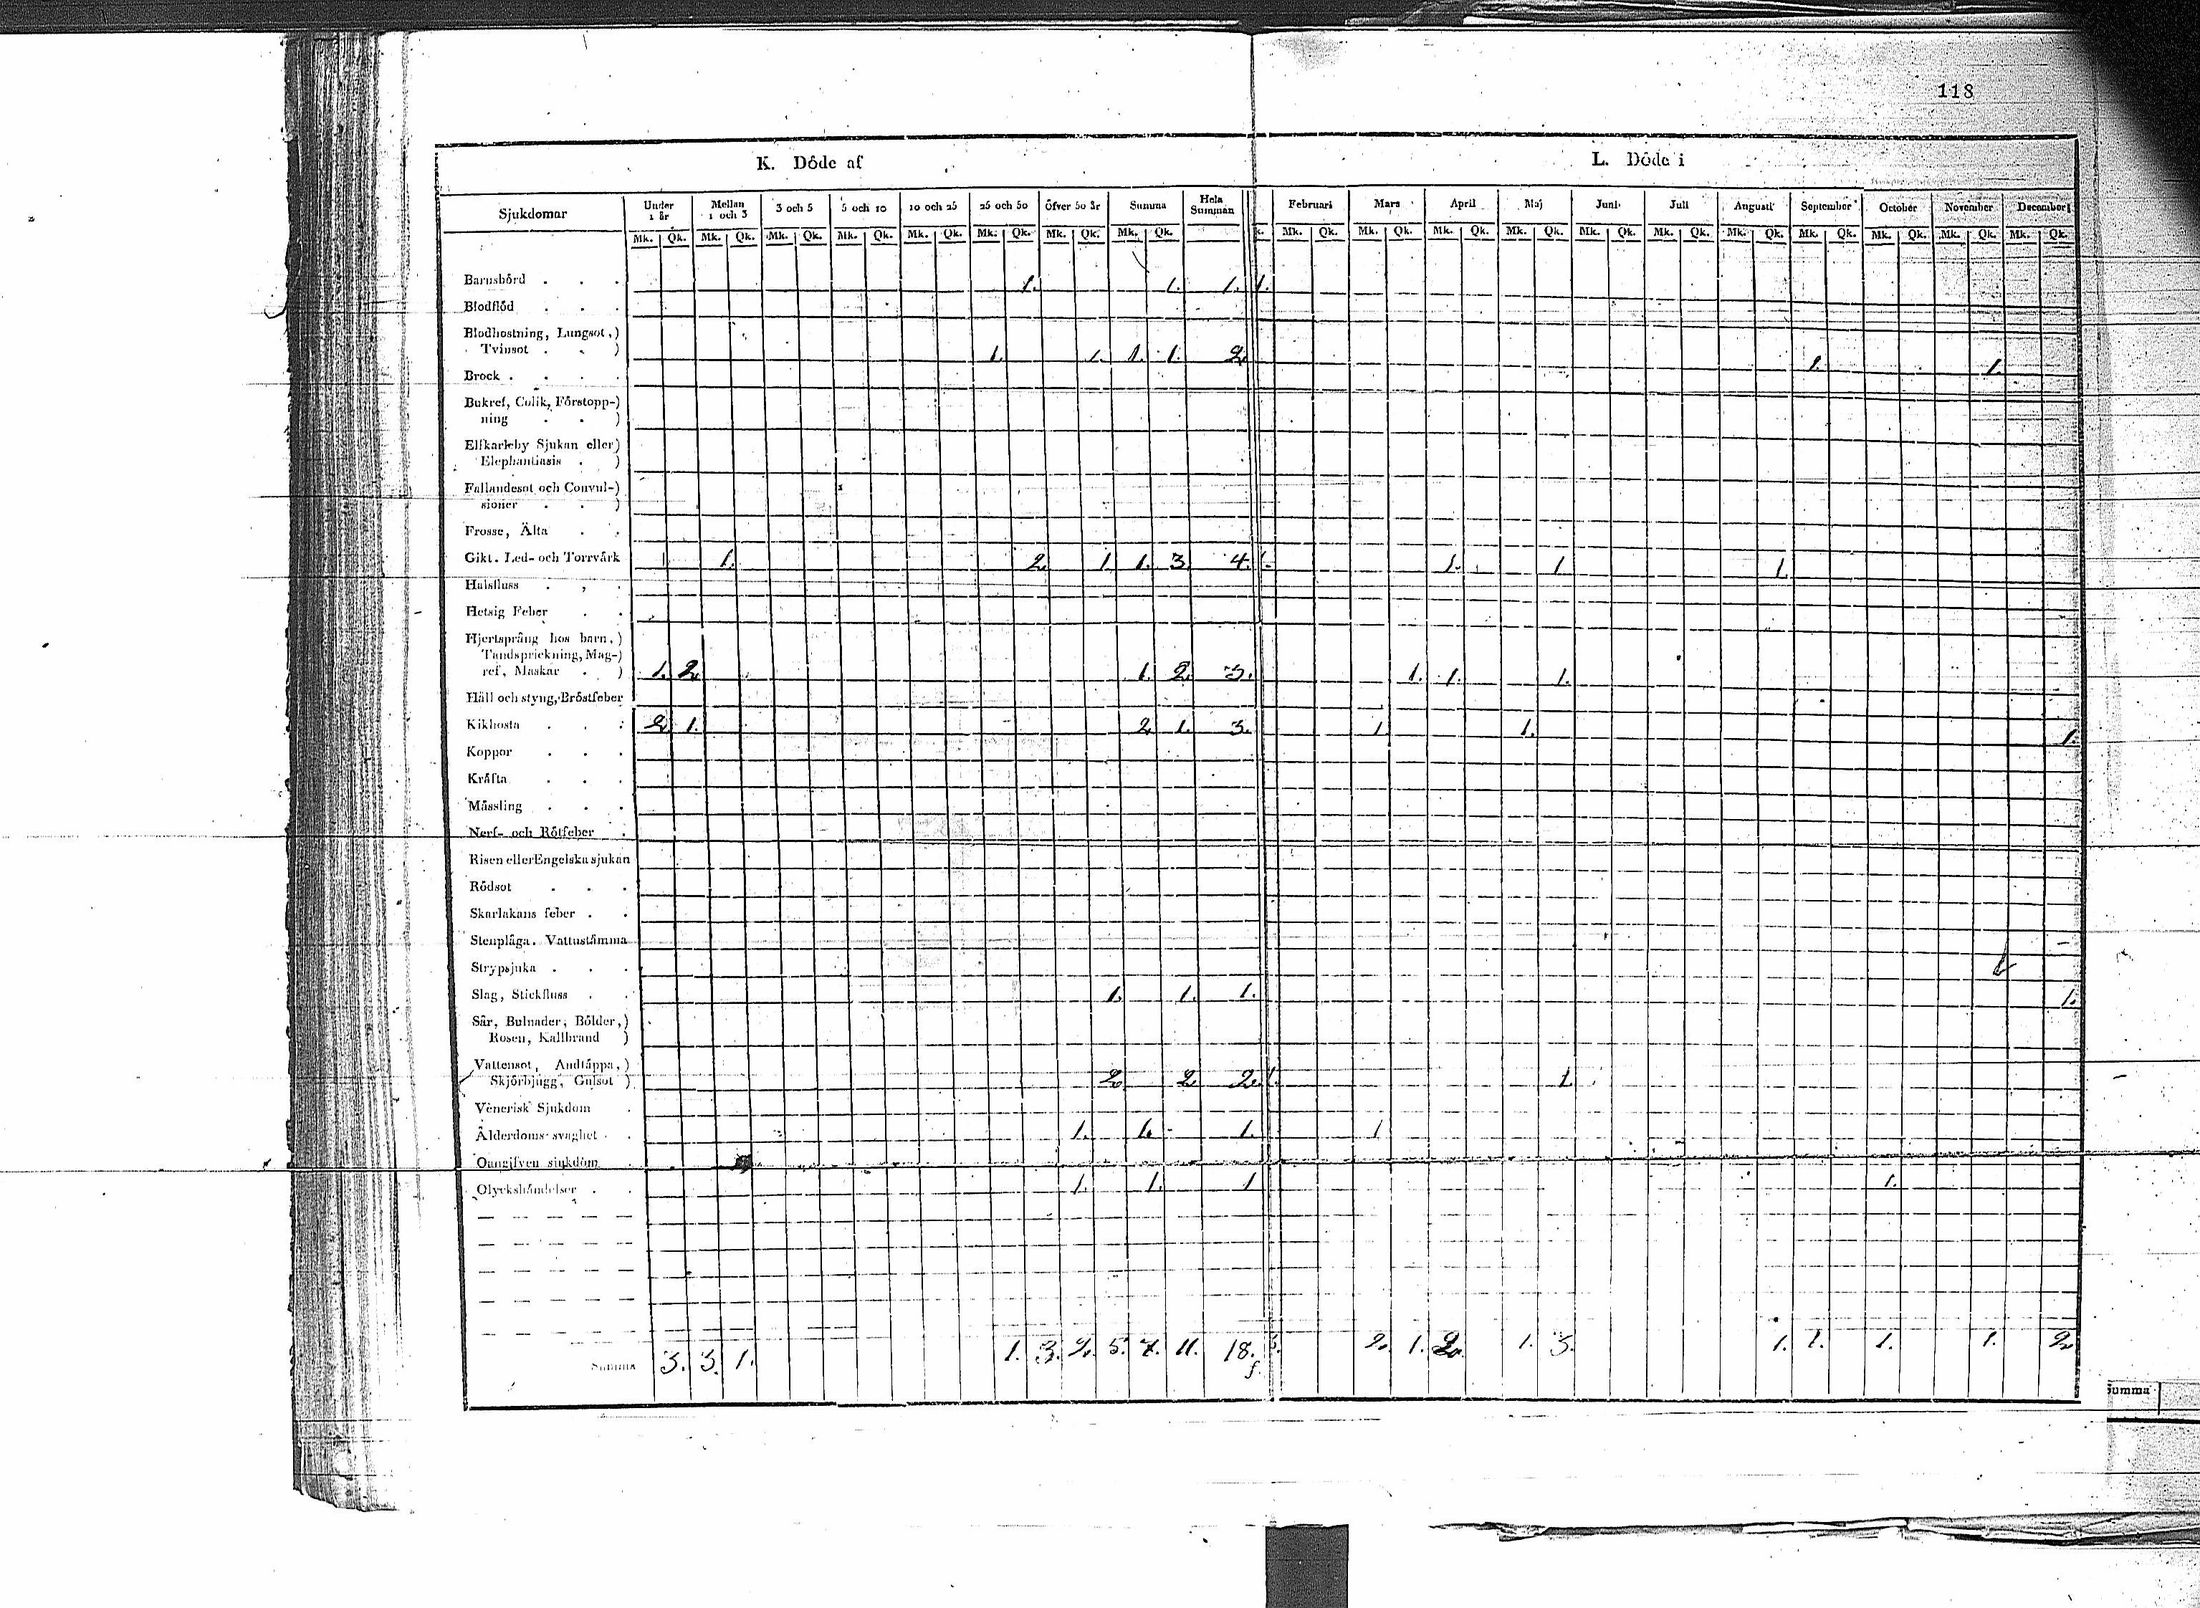 118
K. Döde af L. Döde i
Sjukdomar Under 1 år Mellan 1 och 3 3 och 5 5 och 10 10 och 25 25 och 50 Öfver 50 år Summa Hela Summan Februari Mars April Maj Juni Juli Augusti September October November December
Mk. Qk. Mk. Qk. Mk. Qk. Mk. Qk. Mk. Qk. Mk. Qk. Mk. Qk. Mk. Qk. k. Mk. Qk. Mk. Qk. Mk. Qk. Mk. Qk. Mk. Qk. Mk. Qk. Mk. Qk. Mk. Qk. Mk. Qk. Mk. Qk. Mk. Qk.
Barnsbörd . . . 1. 1. 1. 1.
Blodflöd . . .
Blodhostning, Lungsot,)
Tvinsot . . ) 1. 1. 1. 1. 2. 1. 1.
Brock . . . .
Bukref, Colik, Förstopp-)
ning . . )
Elfkarleby Sjukan eller)
Elephantiasis . )
Fallandesot och Convul-)
sioner . . )
Frosse, Älta . .
Gikt. Led- och Torrvärk 1 1. 2 1. 1. 3 4. 1. 1. 1. 1.
Halsfluss . , .
Hetsig Feber . .
Hjertsprång hos barn,)
Tandsprickning, Mag-)
ref, Maskar . ) 1. 2. 1. 2. 3. 1. 1. 1.
Håll och styng, Bröstfeber
Kikhosta . . . 2 1. 2 1. 3. 1 1. 1.
Koppor . . .
Kräfta . . .
Mässling . . .
Nerf- och Rötfeber .
Risen eller Engelska sjukan
Rödsot . . .
Skarlakans feber . .
Stenplåga. Vattustämma
Strypsjuka . . .
Slag, Stickfluss . . 1. 1. 1. 1.
Sår, Bulnader, Bölder,)
Rosen, Kallbrand )
Vattensot, Andtäppa,)
Skjörbjugg, Gulsot ) 2 2 2. 1. 1.
Venerisk Sjukdom .
Ålderdoms-svaghet . . 1. 1. 1. 1
Oangifven sjukdom
Olyckshändelser . . 1. 1. 1 1.
Summa 3. 3. 1. 1. 3. 2. 5. 7. 11. 18. 2. 1. 2. 1. 3. 1. 1. 1. 1. 2
Summa